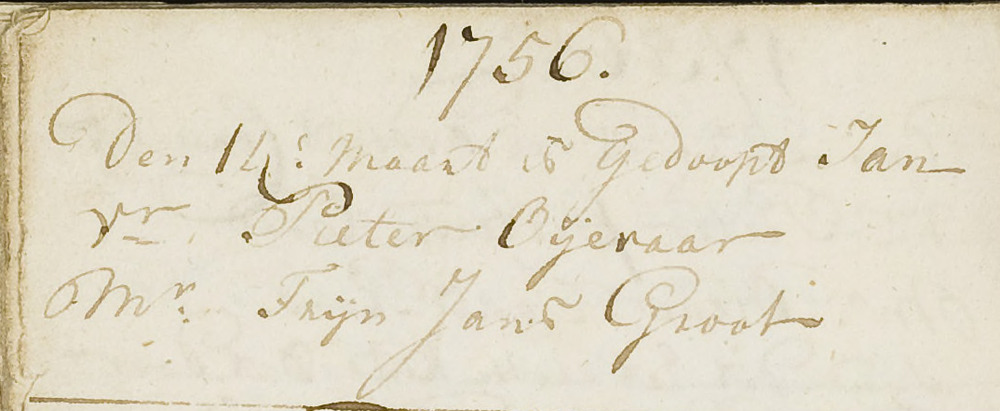 1756.
Den 14: Maart is Gedoopt Jan
vr Pieter Oijevaar
Mr. Trijn Jans Groot